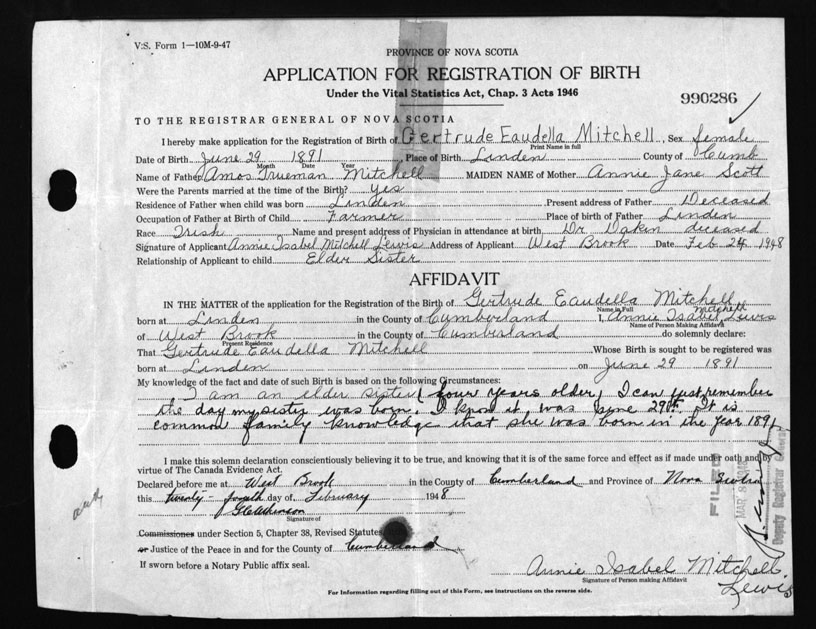 V.S. Form 1—10M-9-47
PROVINCE OF NOVA SCOTIA
APPLICATION FOR REGISTRATION OF BIRTH
Under the Vital Statistics Act, Chap. 3 Acts 1946
990286
TO THE REGISTRAR GENERAL OF NOVA SCOTIA
I hereby make application for the Registration of Birth of Gertrude Eaudella Mitchell Sex female
Print Name in full
Date of Birth June 29 1891 Place of Birth Linden County of Cumb
Month Date Year
Name of Father Amos Trueman Mitchell MAIDEN NAME of Mother Annie Jane Scott
Were the Parents married at the time of the Birth? Yes
Residence of Father when child was born Linden Present address of Father Deceased
Occupation of Father at Birth of Child Farmer Place of birth of Father Linden
Race Irish Name and present address of Physician in attendance at birth Dr Dakin deceased
Signature of Applicant Annie Isabel Mitchell Lewis Address of Applicant West Brook Date Feb 24 1948
Relationship of Applicant to child Elder Sister
AFFIDAVIT
IN THE MATTER of the application for the Registration of the Birth of Gertrude Eaudella Mitchell
Name in Full
born at Linden in the County of Cumberland I, Annie Isabel Mitchell Lewis
Name of Person Making Affidavit
of West Brook in the County of Cumberland do solemnly declare:
Present Residence
That Gertrude Eaudella Mitchell Whose Birth is sought to be registered was
born at Linden on June 29 1891
My knowledge of the fact and date of such Birth is based on the following Circumstances:
I am an elder sister (four years older) I can just remember
the day my sister was born. I know it was June 29th. It is
common family knowledge that she was born in the year 1891
I make this solemn declaration conscientiously believing it to be true, and knowing that it is of the same force and effect as if made under oath and by
virtue of The Canada Evidence Act.
Declared before me at West Brook in the County of Cumberland and Province of Nova Scotia
this twenty-fourth day of February 1948
Signature of
Commissioner under Section 5, Chapter 38, Revised Statutes
or Justice of the Peace in and for the County of Cumberland
If sworn before a Notary Public affix seal.
Annie Isabel Mitchell
Lewis
Signature of Person making Affidavit
For information regarding filling out of this Form, see instructions on the reverse side.
FILED
Deputy Registrar General